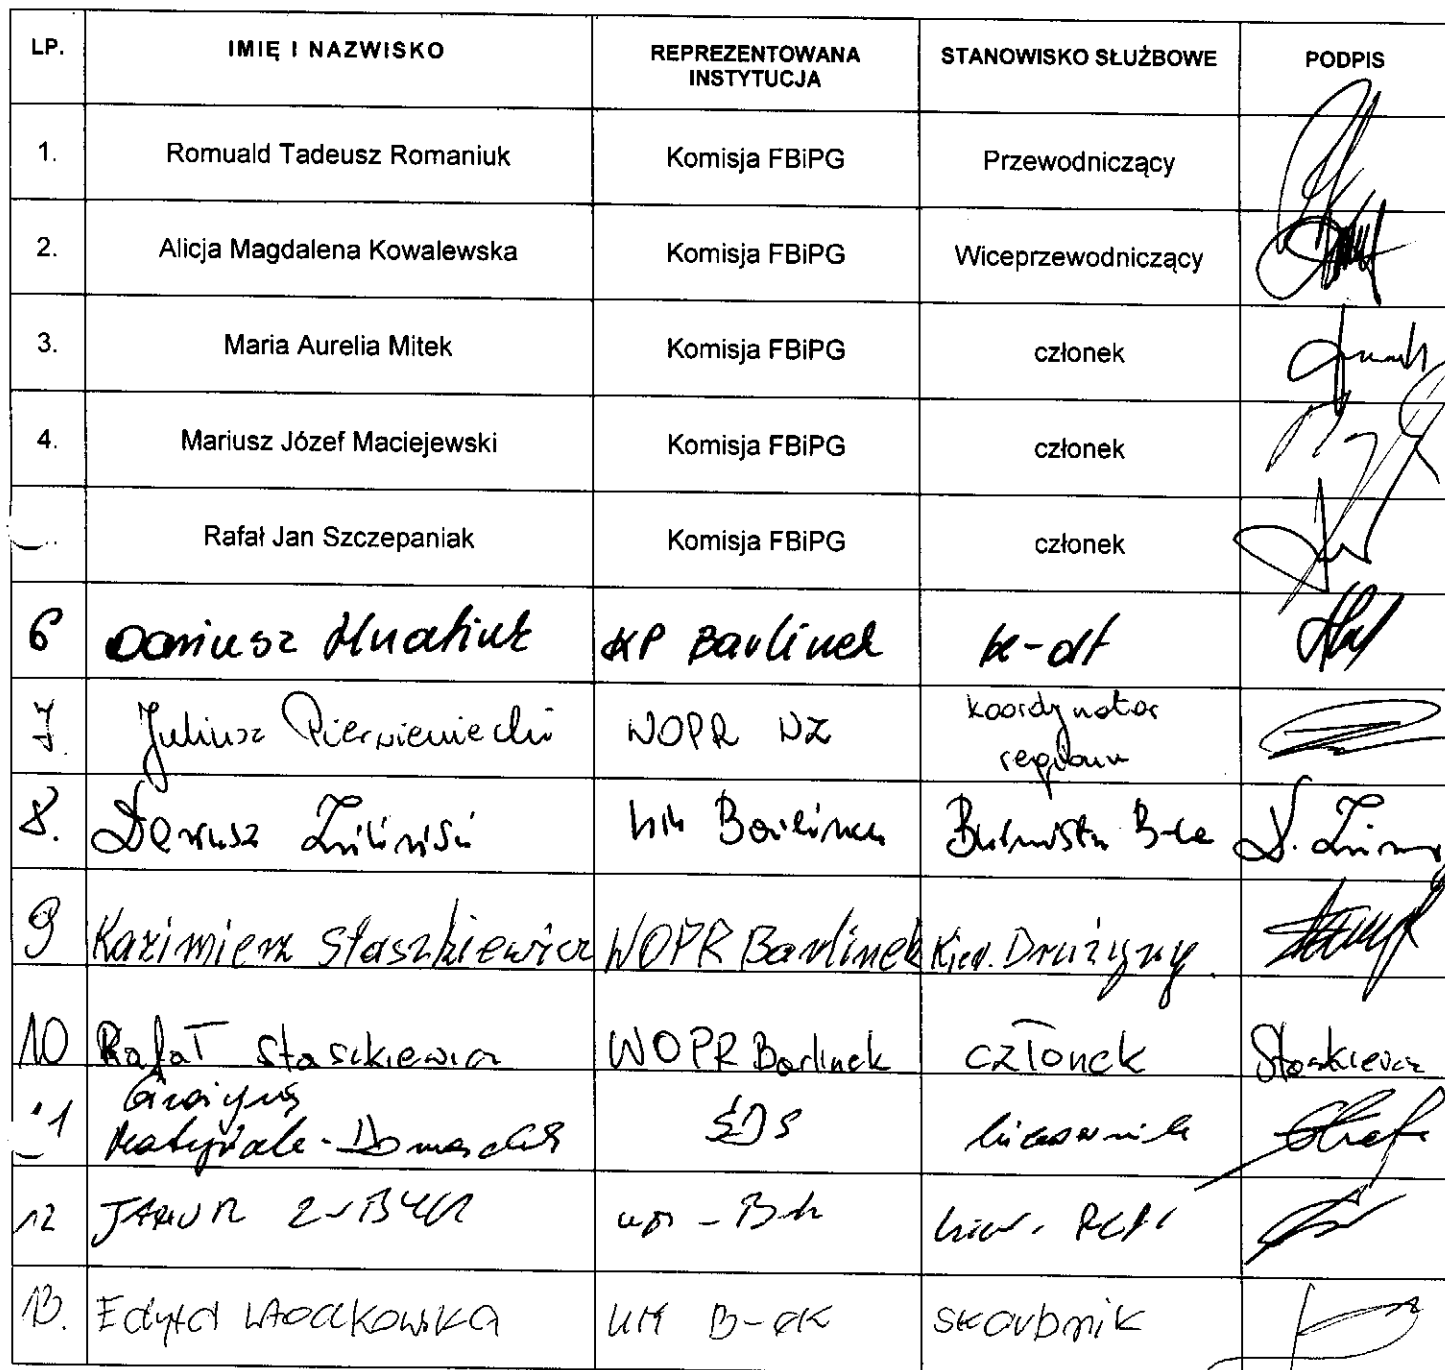 LP. IMIĘ I NAZWISKO REPREZENTOWANA INSTYTUCJA STANOWISKO SŁUŻBOWE PODPIS
1. Romuald Tadeusz Romaniuk Komisja FBiPG Przewodniczący
2. Alicja Magdalena Kowalewska Komisja FBiPG Wiceprzewodniczący
3. Maria Aurelia Mitek Komisja FBiPG członek
4. Mariusz Józef Maciejewski Komisja FBiPG członek
Rafał Jan Szczepaniak Komisja FBiPG członek
6 Dariusz Hnatiuk KP Barlinek k-dt
7. Juliusz Pierwieniecki WOPR WZ koordynator regionu
8. Dariusz Zieliński UM Barlinek Burmistrz B-ka D.
9 Kazimierz Staszkiewicz WOPR Barlinek Kier. Drużyny
10 Rafał Staszkiewicz WOPR Barlinek członek Staszkiewicz
11 Grażyna ŚDS kierownik
12 kier.
13. Edyta UM B-ek skarbnik